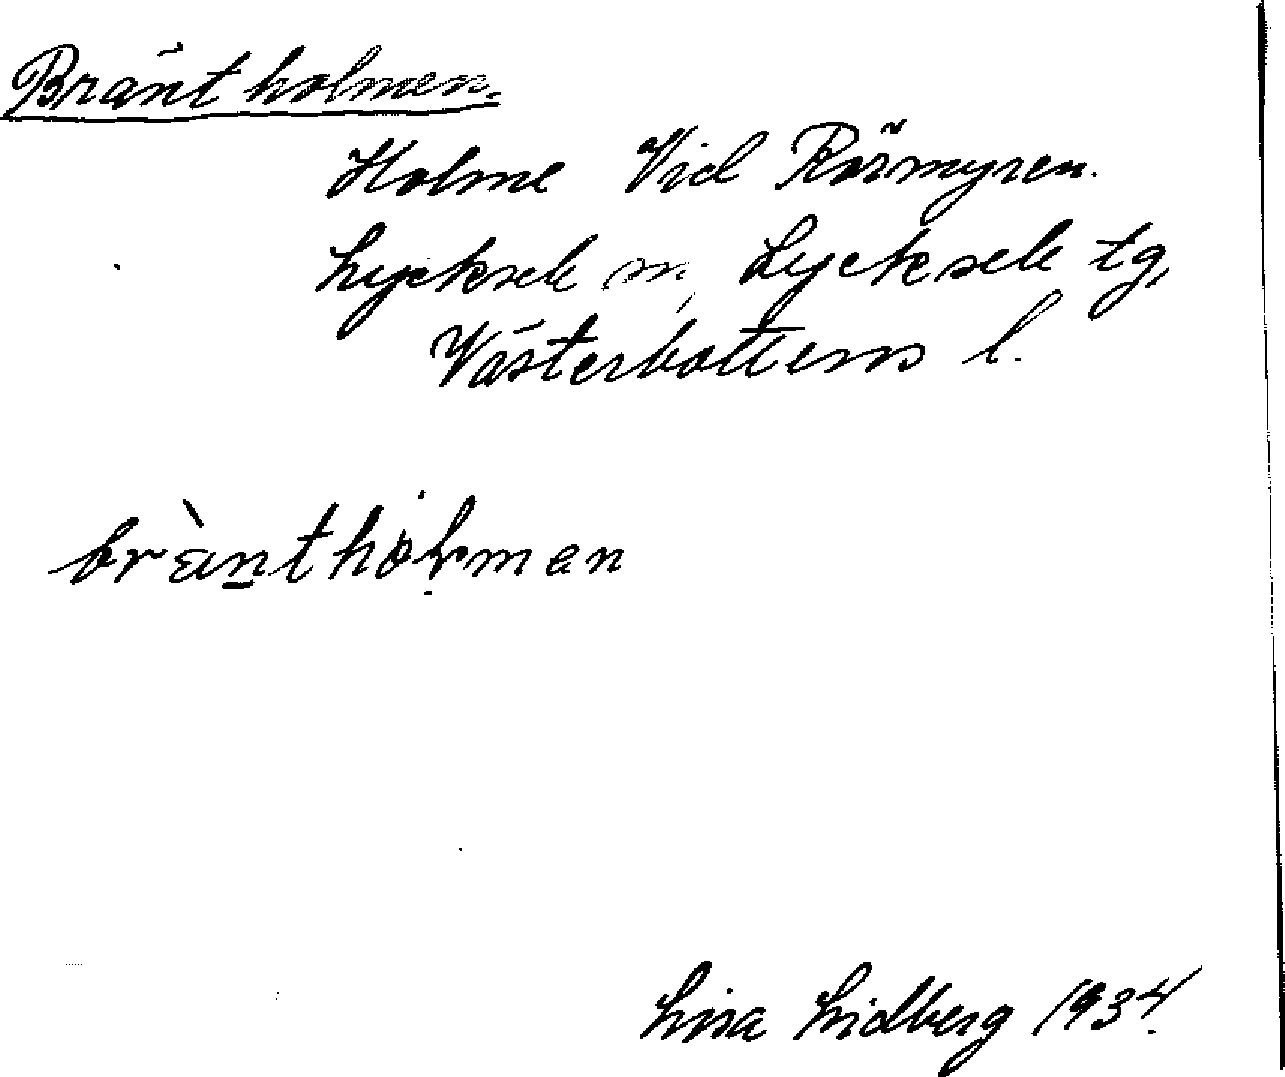 Bräntholmen.
Holme Vid Rörmyren.
Lycksele sn, Lycksele tg,
Västerbottens l.
bräntholmen
Lisa Lidberg 1934.